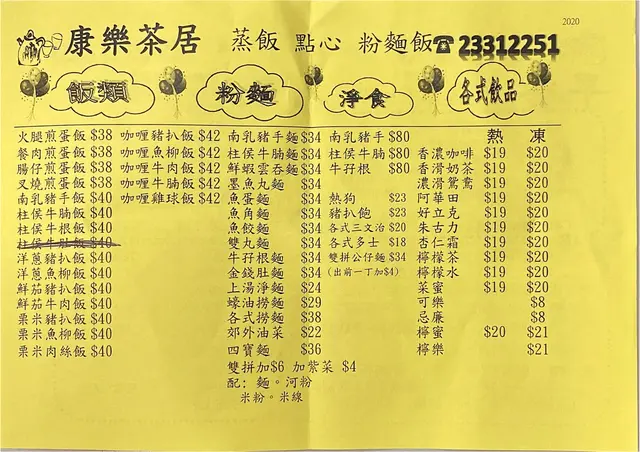 2020
康樂茶居 蒸飯 點心 粉麵飯☎23312251
飯類
火腿煎蛋飯 $38 咖喱豬扒飯 $42
餐肉煎蛋飯 $38 咖喱魚柳飯 $42
腸仔煎蛋飯 $38 咖喱牛肉飯 $42
叉燒煎蛋飯 $38 咖喱牛腩飯 $42
南乳豬手飯 $40 咖喱雞球飯 $42
柱侯牛腩飯 $40
柱侯牛根飯 $40
柱侯牛肚飯 $40
洋蔥豬扒飯 $40
洋蔥魚柳飯 $40
鮮茄豬扒飯 $40
鮮茄牛肉飯 $40
粟米豬扒飯 $40
粟米魚柳飯 $40
粟米肉絲飯 $40
粉麵
南乳豬手麵 $34
柱侯牛腩麵 $34
鮮蝦雲吞麵 $34
墨魚丸麵 $34
魚蛋麵 $34
魚角麵 $34
魚餃麵 $34
雙丸麵 $34
牛孖根麵 $34
金錢肚麵 $34
上湯淨麵 $24
蠔油撈麵 $29
各式撈麵 $38
郊外油菜 $22
四寶麵 $36
雙拼加$6 加紫菜 $4
配: 麵。河粉
米粉。米線
淨食
南乳豬手 $80
柱侯牛腩 $80
牛孖根 $80
熱狗 $23
豬扒飽 $23
各式三文治 $20
各式多士 $18
雙拼公仔麵 $34
(出前一丁加$4)
各式飲品
熱 凍
香濃咖啡 $19 $20
香滑奶茶 $19 $20
濃滑鴛鴦 $19 $20
阿華田 $19 $20
好立克 $19 $20
朱古力 $19 $20
杏仁霜 $19 $20
檸檬茶 $19 $20
檸檬水 $19 $20
菜蜜 $19 $20
可樂 $8
忌廉 $8
檸蜜 $20 $21
檸樂 $21